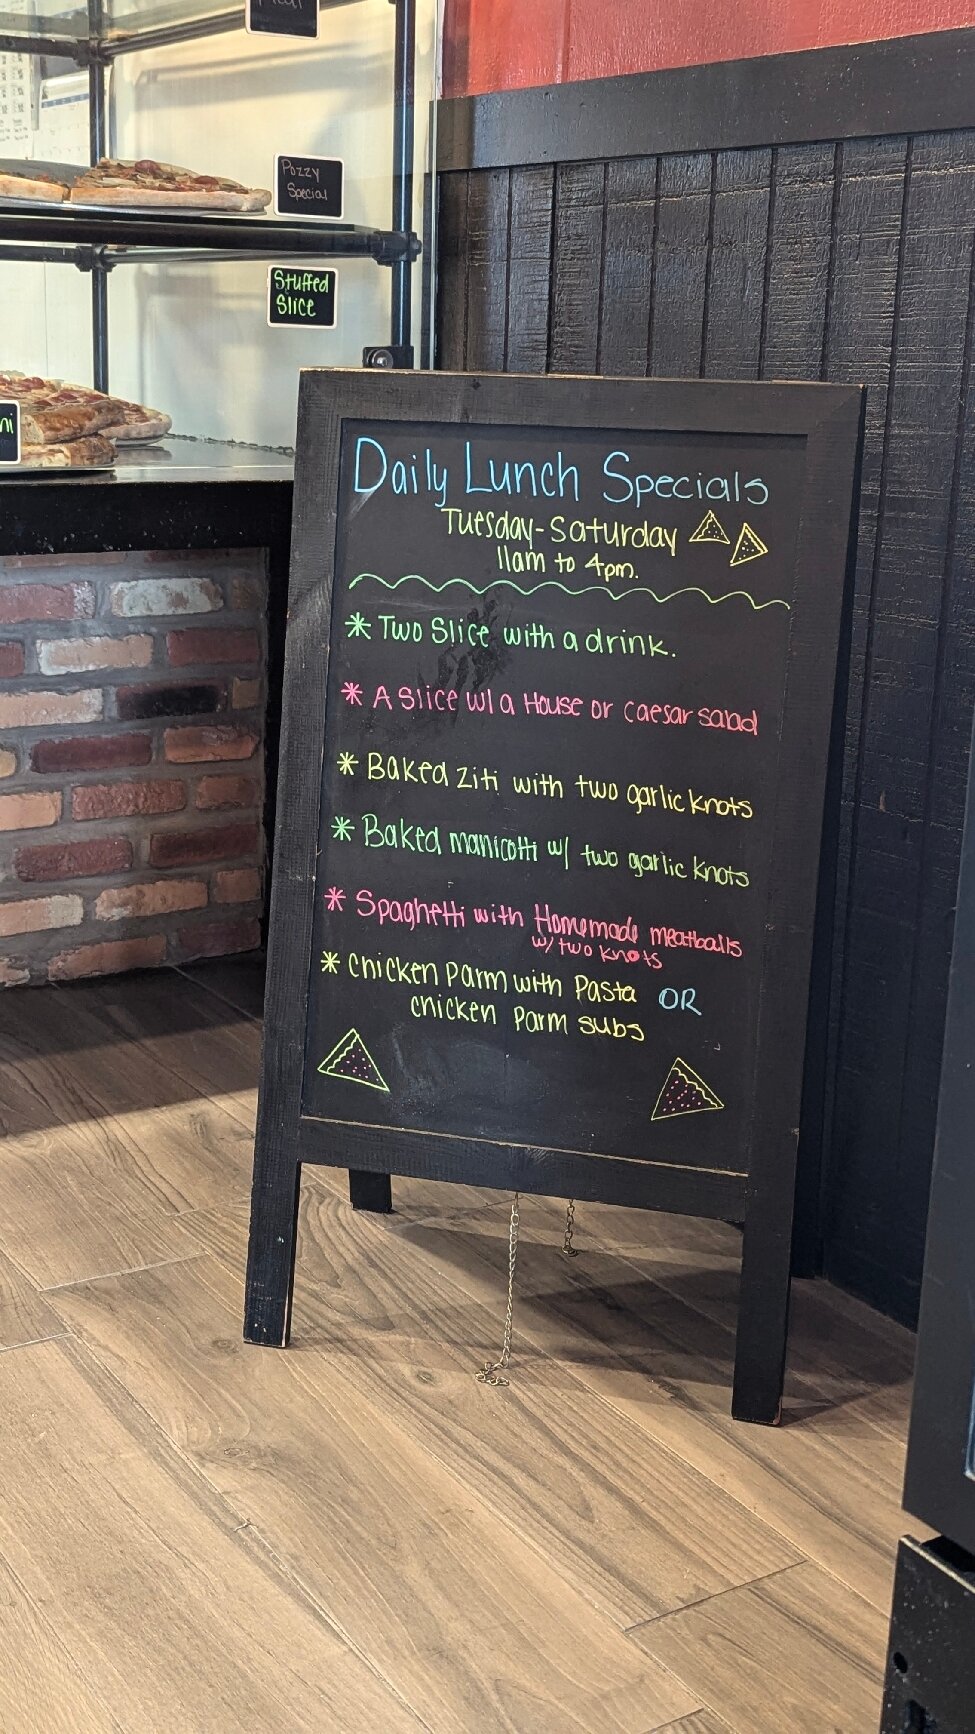 Pozzy
Special
Stuffed
Slice
Daily Lunch Specials
Tuesday-Saturday
11am to 4pm.
* Two Slice with a drink.
* A Slice w/ a House or Caesar salad
* Baked Ziti with two garlic knots
* Baked manicotti w/ two garlic knots
* Spaghetti with Homemade meatballs
w/ two knots
* Chicken Parm with Pasta OR
chicken Parm subs